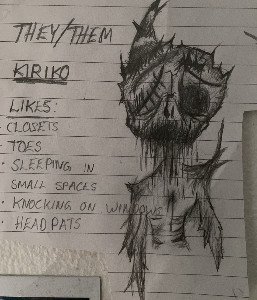 THEY/THEM
KIRIKO
LIKES:
- CLOSETS
- TOES
· SLEEPING IN
SMALL SPACES
· KNOCKING ON WINDOWS
· HEADPATS